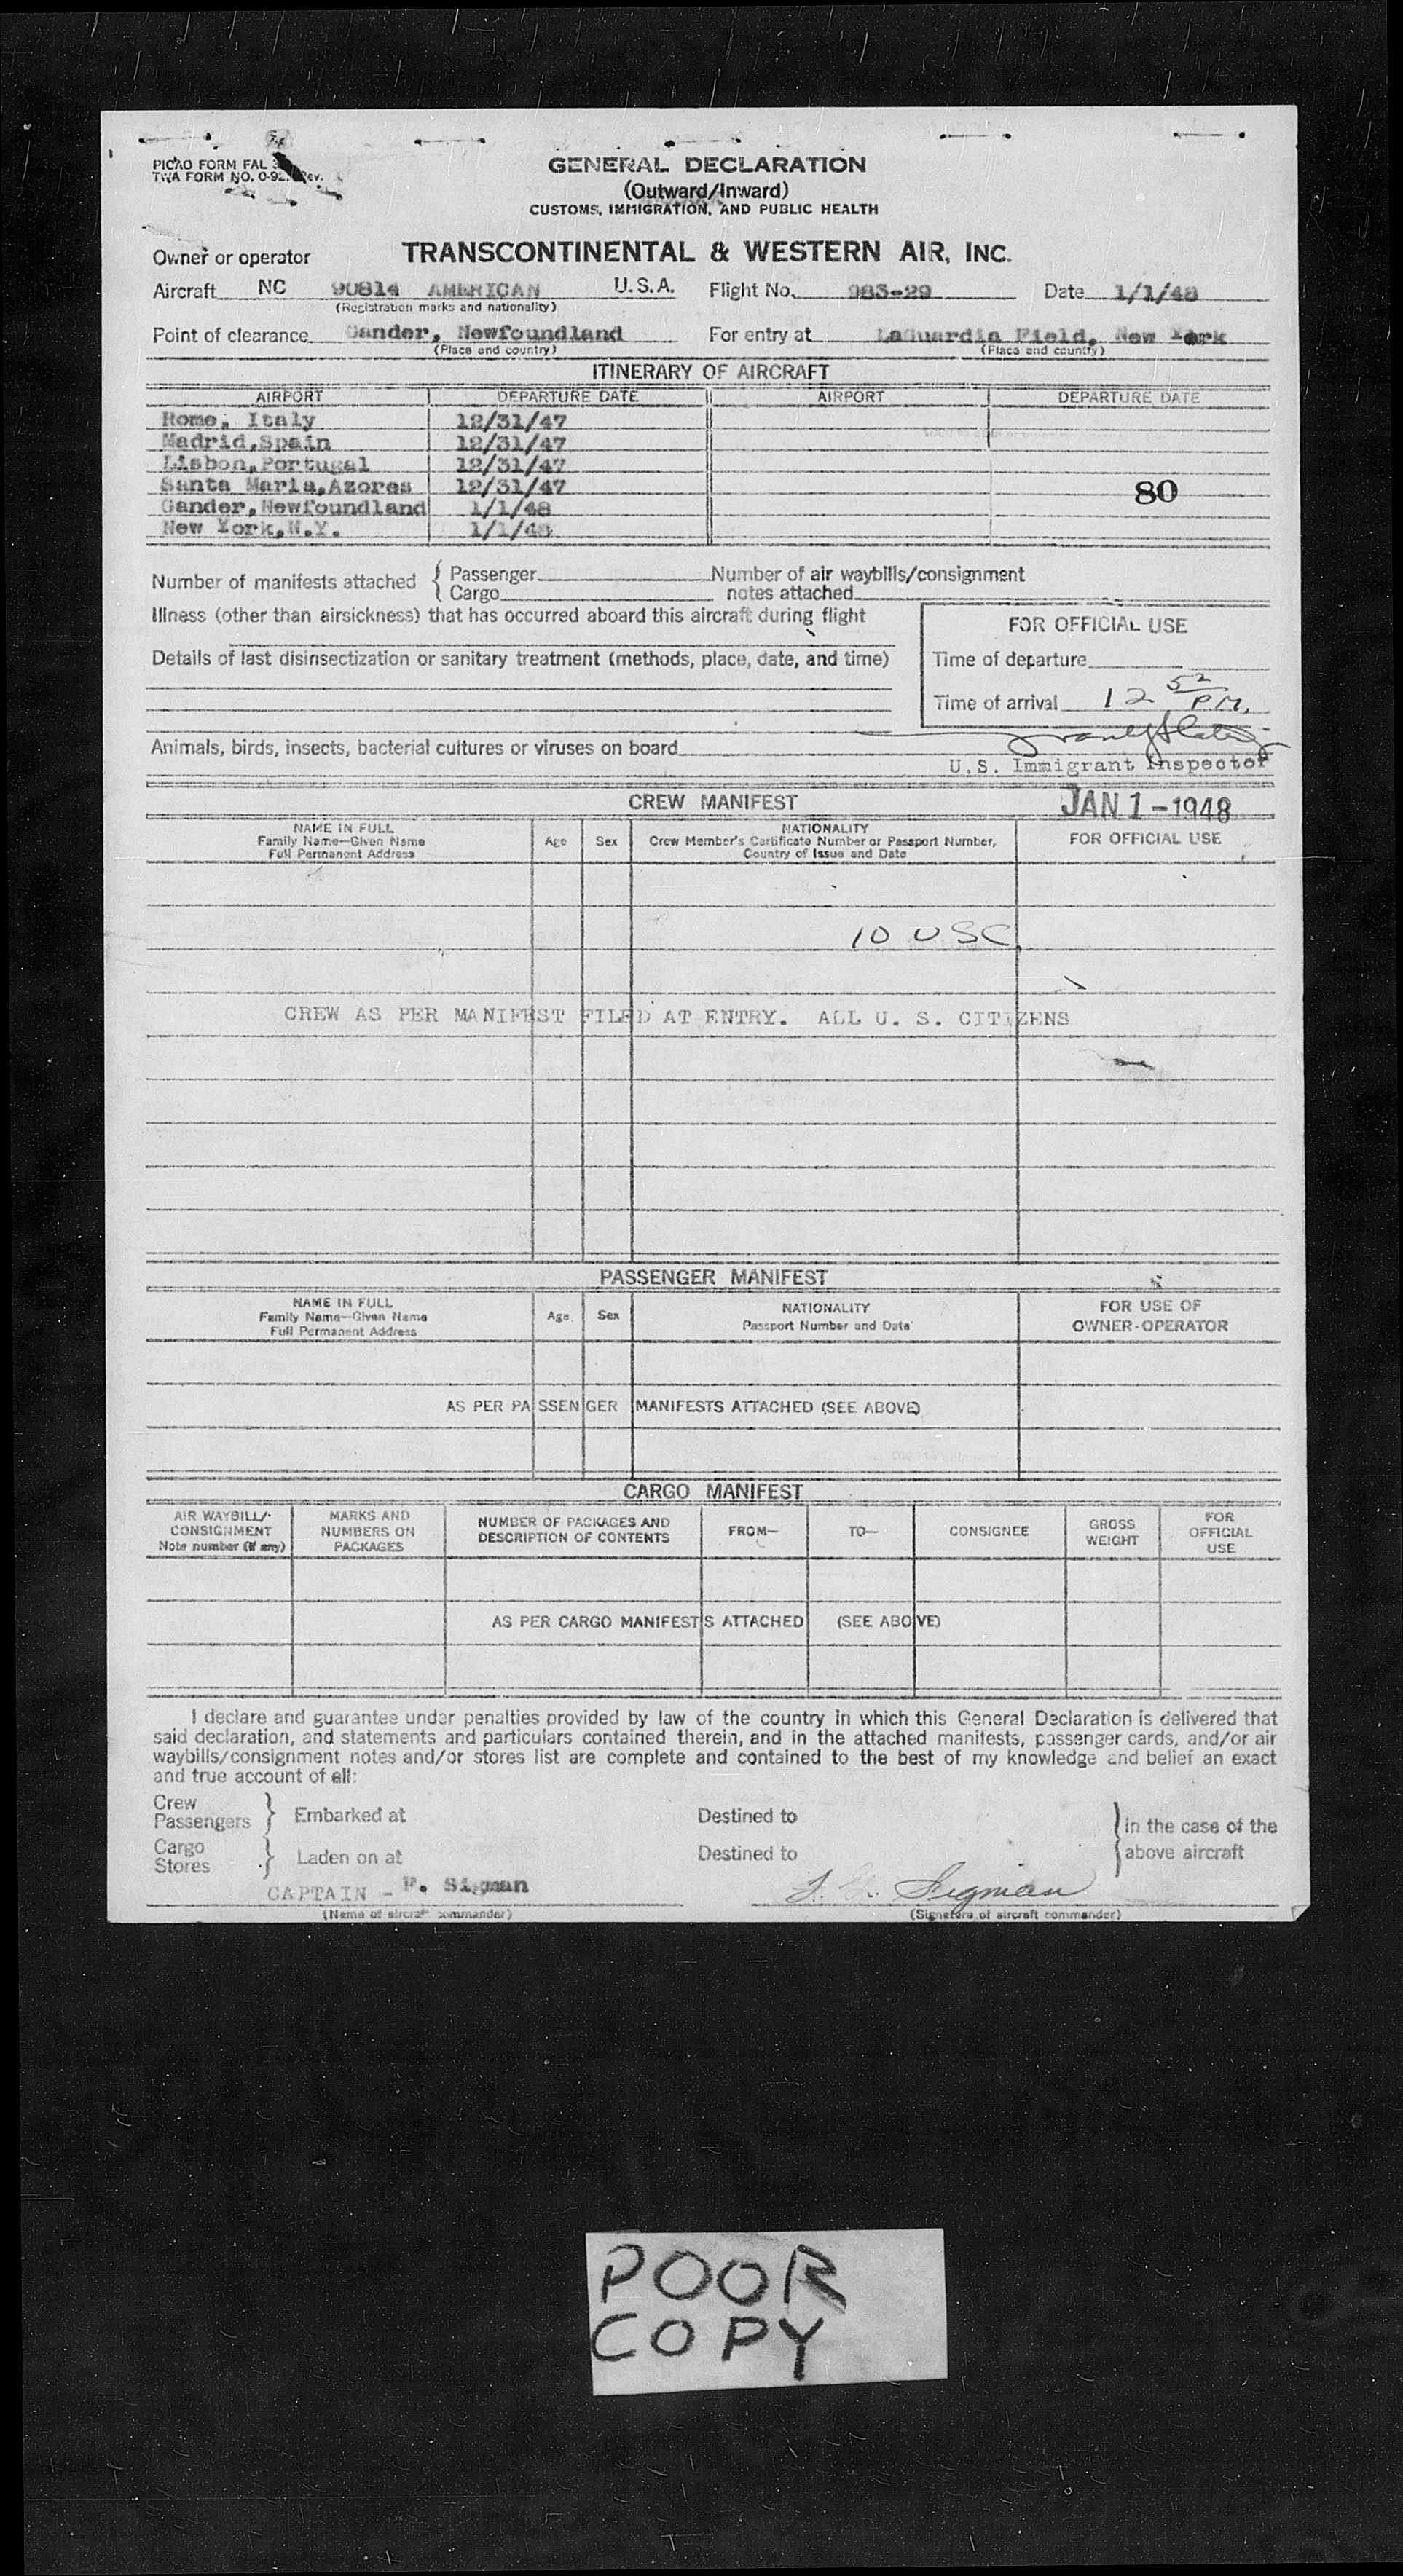 PICAO FORM FAL
TWA FORM NO. 0-92 Rev.
GENERAL DECLARATION
(Outward/Inward)
CUSTOMS, IMMIGRATION, AND PUBLIC HEALTH
Owner or operator TRANSCONTINENTAL & WESTERN AIR, INC.
Aircraft NC 90814 AMERICAN U.S.A. Flight No. 983-29 Date 1/1/48
(Registration marks and nationality)
Point of clearance Gander, Newfoundland For entry at LaGuardia Field, New York
(Place and country) (Place and country)
ITINERARY OF AIRCRAFT
AIRPORT DEPARTURE DATE AIRPORT DEPARTURE DATE
Rome, Italy 12/31/47
Madrid,Spain 12/31/47
Lisbon,Portugal 12/31/47
Santa Maria,Azores 12/31/47 80
Gander,Newfoundland 1/1/48
New York,N.Y. 1/1/48
Number of manifests attached { Passenger Number of air waybills/consignment
Cargo notes attached
Illness (other than airsickness) that has occurred aboard this aircraft during flight
FOR OFFICIAL USE
Details of last disinsectization or sanitary treatment (methods, place, date, and time)
Time of departure
Time of arrival 12 52 P.M.
Animals, birds, insects, bacterial cultures or viruses on board
U.S. Immigrant Inspector
CREW MANIFEST JAN 1-1948
NAME IN FULL
Family Name—Given Name
Full Permanent Address
Age Sex
NATIONALITY
Crew Member's Certificate Number or Passport Number,
Country of Issue and Date
FOR OFFICIAL USE
10 USC
CREW AS PER MANIFEST FILED AT ENTRY. ALL U. S. CITIZENS
PASSENGER MANIFEST
NAME IN FULL
Family Name—Given Name
Full Permanent Address
Age Sex
NATIONALITY
Passport Number and Date
FOR USE OF
OWNER-OPERATOR
AS PER PASSENGER MANIFESTS ATTACHED (SEE ABOVE)
CARGO MANIFEST
AIR WAYBILL/
CONSIGNMENT
Note number (if any)
MARKS AND
NUMBERS ON
PACKAGES
NUMBER OF PACKAGES AND
DESCRIPTION OF CONTENTS
FROM—
TO—
CONSIGNEE
GROSS
WEIGHT
FOR
OFFICIAL
USE
AS PER CARGO MANIFESTS ATTACHED (SEE ABOVE)
I declare and guarantee under penalties provided by law of the country in which this General Declaration is delivered that
said declaration, and statements and particulars contained therein, and in the attached manifests, passenger cards, and/or air
waybills/consignment notes and/or stores list are complete and contained to the best of my knowledge and belief an exact
and true account of all:
Crew
Passengers } Embarked at Destined to
Cargo
Stores } Laden on at Destined to
} in the case of the
above aircraft
CAPTAIN - F. Sigman
Sigman
(Name of aircraft commander) (Signature of aircraft commander)
POOR
COPY